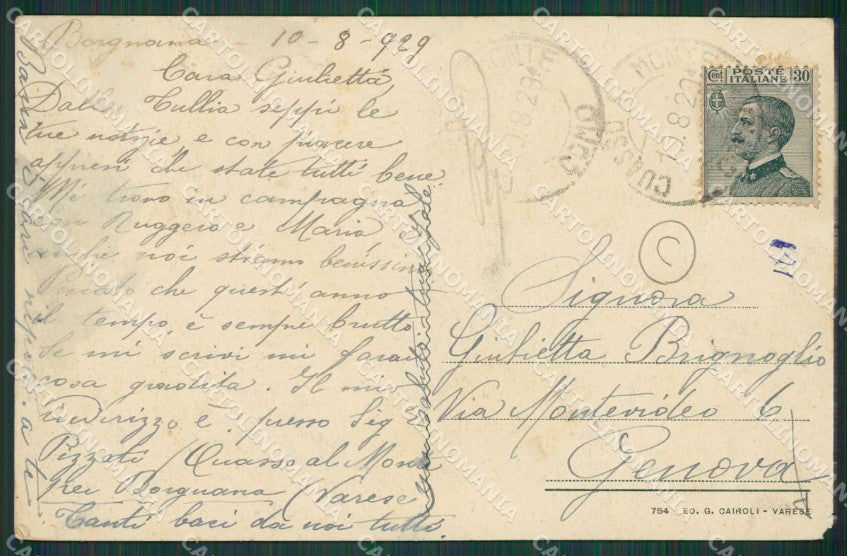 Borgnana - 10-8-929
Cara Giulietta,
Dalla Tullia seppi le
tue notizie e con piacere
appresi che state tutti bene.
Mi trovo in campagna
con Ruggero e Maria e
anche noi stiamo benissimo
Peccato che quest'anno
il tempo è sempre brutto.
Se mi scrivi mi farai
cosa gradita. Il mio
indirizzo è: presso Sig
Pizzati (Cuasso al Monte
per Borgnana (Varese
Tanti baci da noi tutti.
Baci cari a te
CUASSO
MONTE
Cent POSTE ITALIANE 30
C
Signora
Giulietta Brignoglio
Via Montevideo 6
Genova
754 ED. G. CAIROLI - VARESE
CARTOLINOMANIA